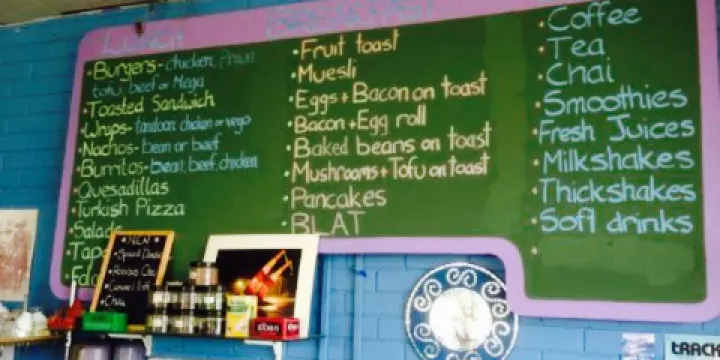 LUNCH
·Burgers- chicken, Prawn
tofu, beef or Mega
·Toasted Sandwich
·Wraps- tandoori chicken or vego
·Nachos- bean or beef
·Burritos- bean, beef, chicken
·Quesadillas
·Turkish Pizza
·Salads
BREAKFAST
·Fruit toast
·Muesli
·Eggs + Bacon on toast
·Bacon + Egg roll
·Baked beans on toast
·Mushrooms + Tofu on toast
·Pancakes
·BLAT
·Coffee
·Tea
·Chai
·Smoothies
·Fresh Juices
·Milkshakes
·Thickshakes
·Soft drinks
·NEW·